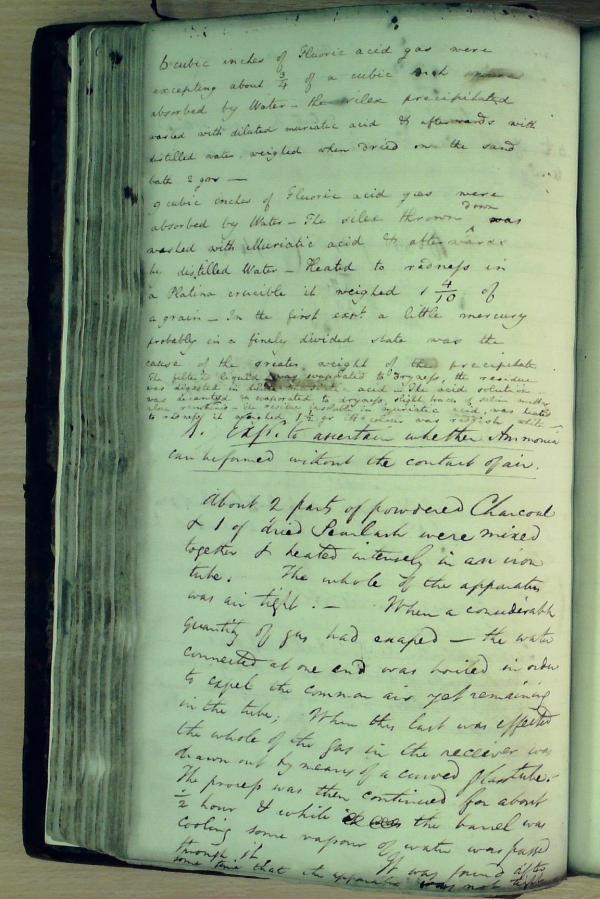 6 cubic inches of Fluoric acid gas were
excepting about 3/4 of a cubic inch
absorbed by Water – the silex precipitated
washed with diluted muriatic acid & afterwards with
distilled water, weighed when dried on the sand
bath 2 grs —
9 cubic inches of Fluoric acid gas were
absorbed by Water – The silex thrown down was
washed with Muriatic acid & afterwards
by distilled Water – Heated to redness in
a Platina crucible it weighed 1 4/10 of
a grain – In the first expt a little mercury
probably in a finely divided state was the
cause of the greater weight of the precipitate
The filtered liquid was evaporated to dryness, the residue
was digested in acid – The acid solution
was decanted & evaporated to dryness, slight traces of saline matter
alone remained – the residue insoluble in muriatic acid, was heated
to redness it weighed 1 1/2 gr its colour was redish white –
A. Expt. to ascertain whether Ammonia
can be formed without the contact of air.
About 2 parts of powdered Charcoal
& 1 of dried Pearlash were mixed
together & heated intensely in an iron
tube. The whole of the apparatus
was air tight. – When a considerable
quantity of gas had escaped – the water
connected at one end was boiled in order
to expel the common air yet remaining
in the tube; When this last was effected
the whole of the gas in the receiver was
drawn out by means of a curved glass tube. –
The process was then continued for about
1/2 hour & while the barrel was
cooling some vapour of water was passed
through it It was found after
some time that the apparatus was not tight